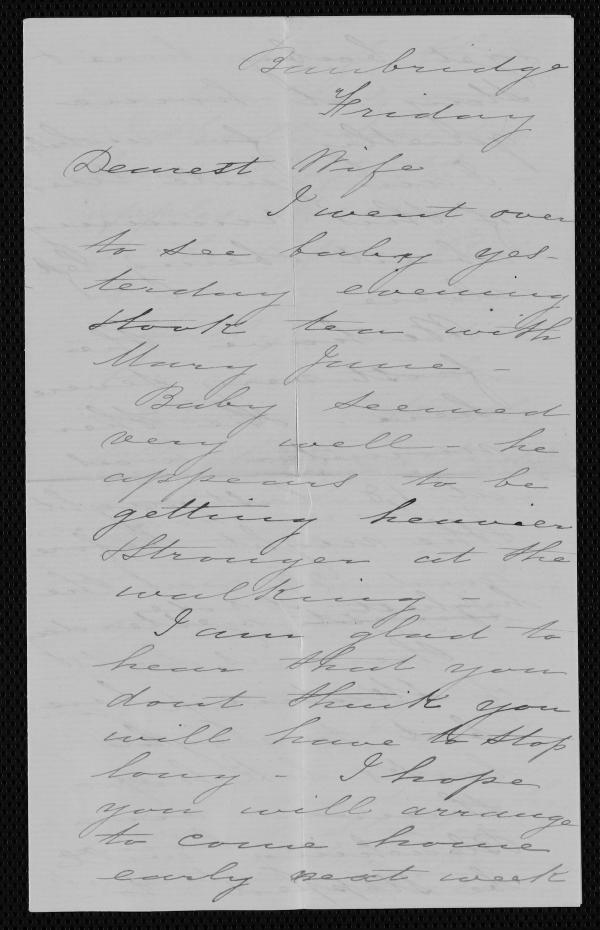 Banbridge
Friday
Dearest Wife
I went over
to see baby yes-
terday evening
& took tea with
Mary Jane -
Baby seemed
very well - he
appears to be
getting heavier
& stronger at the
walking -
I am glad to
hear that you
dont think you
will have to stop
long - I hope
you will arrange
to come home
early next week